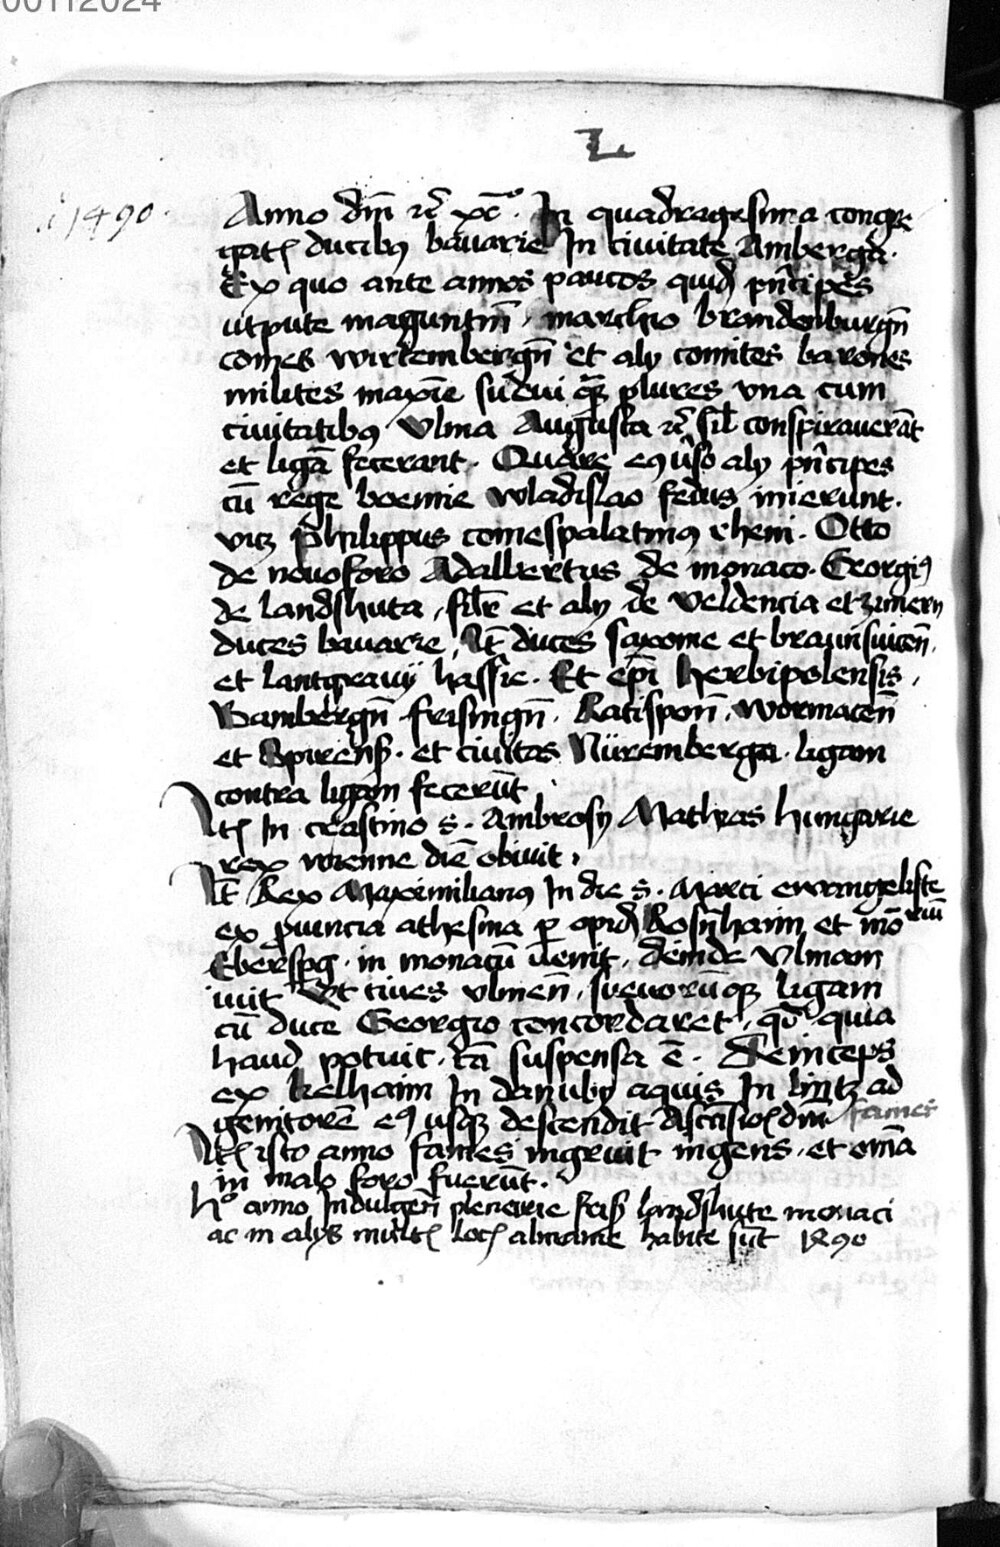 00112024
L
1490.
Anno dm̄ rc̄ xc°. In quadragesima congre
gatꝭ ducibꝰ bauarie In ciuitate Amberga.
Ex quo ante annos paucos quidꝫ pn̄cipes
utpute maguntin̄, marchio brandenburgn̄
comes wirtembergn̄ et alij comites barones
milites maxīe sueui qꝫ plures vna cum
ciuitatibꝰ Vlma Augusta rc̄ sil̄ conspirauerāt
et ligā fecerant. Quare alij pn̄cipes
cū rege boemie wladislao fedus inierunt.
vicꝫ philippus comespalatinꝰ rheni. Otto
de nouoforo Adalbertus de monaco. Georgiꝰ
de landshuta, et alij de veldencia et
duces bauarie, It̄ duces saxonie et braunsuicen̄.
et lantgrauij hassie. Et ep̄i herbipolensis,
Bambergn̄ frisingn̄. Ratispon̄. wormacen̄
et Spirenß. et ciuitas Nüremberga. ligam
contra ligam fecerūt
Itꝭ In crastino s. Ambrosij Mathias hungarie
rex wienne diē obiuit.
It̄ Rex Maximilianꝰ In die s. Marci ewangeliste
ex ꝓuincia athesina ꝑ opidꝫ Rosn̄haim et mō
riū
Eberspg. in monacū uenit, deinde Vlmam
iuit Vt ciues vlmen̄, sueuorūqꝫ ligam
cū duce Georgio concordaret, qd̄ quia
haud potuit. cā suspensa ē. Deinceps
ex kelhaim In danubij aquis In lintz ad
genitorē eꝰ usqꝫ descendit dm̄ fames
Itꝭ isto anno fames ingruit ingens. et om̄a
in malo foro fuerūt.
H° anno Indulgen̄ plenarie frisꝭ landshute monaci
ac in alijs multꝭ locꝭ almanie habite sūt 1490